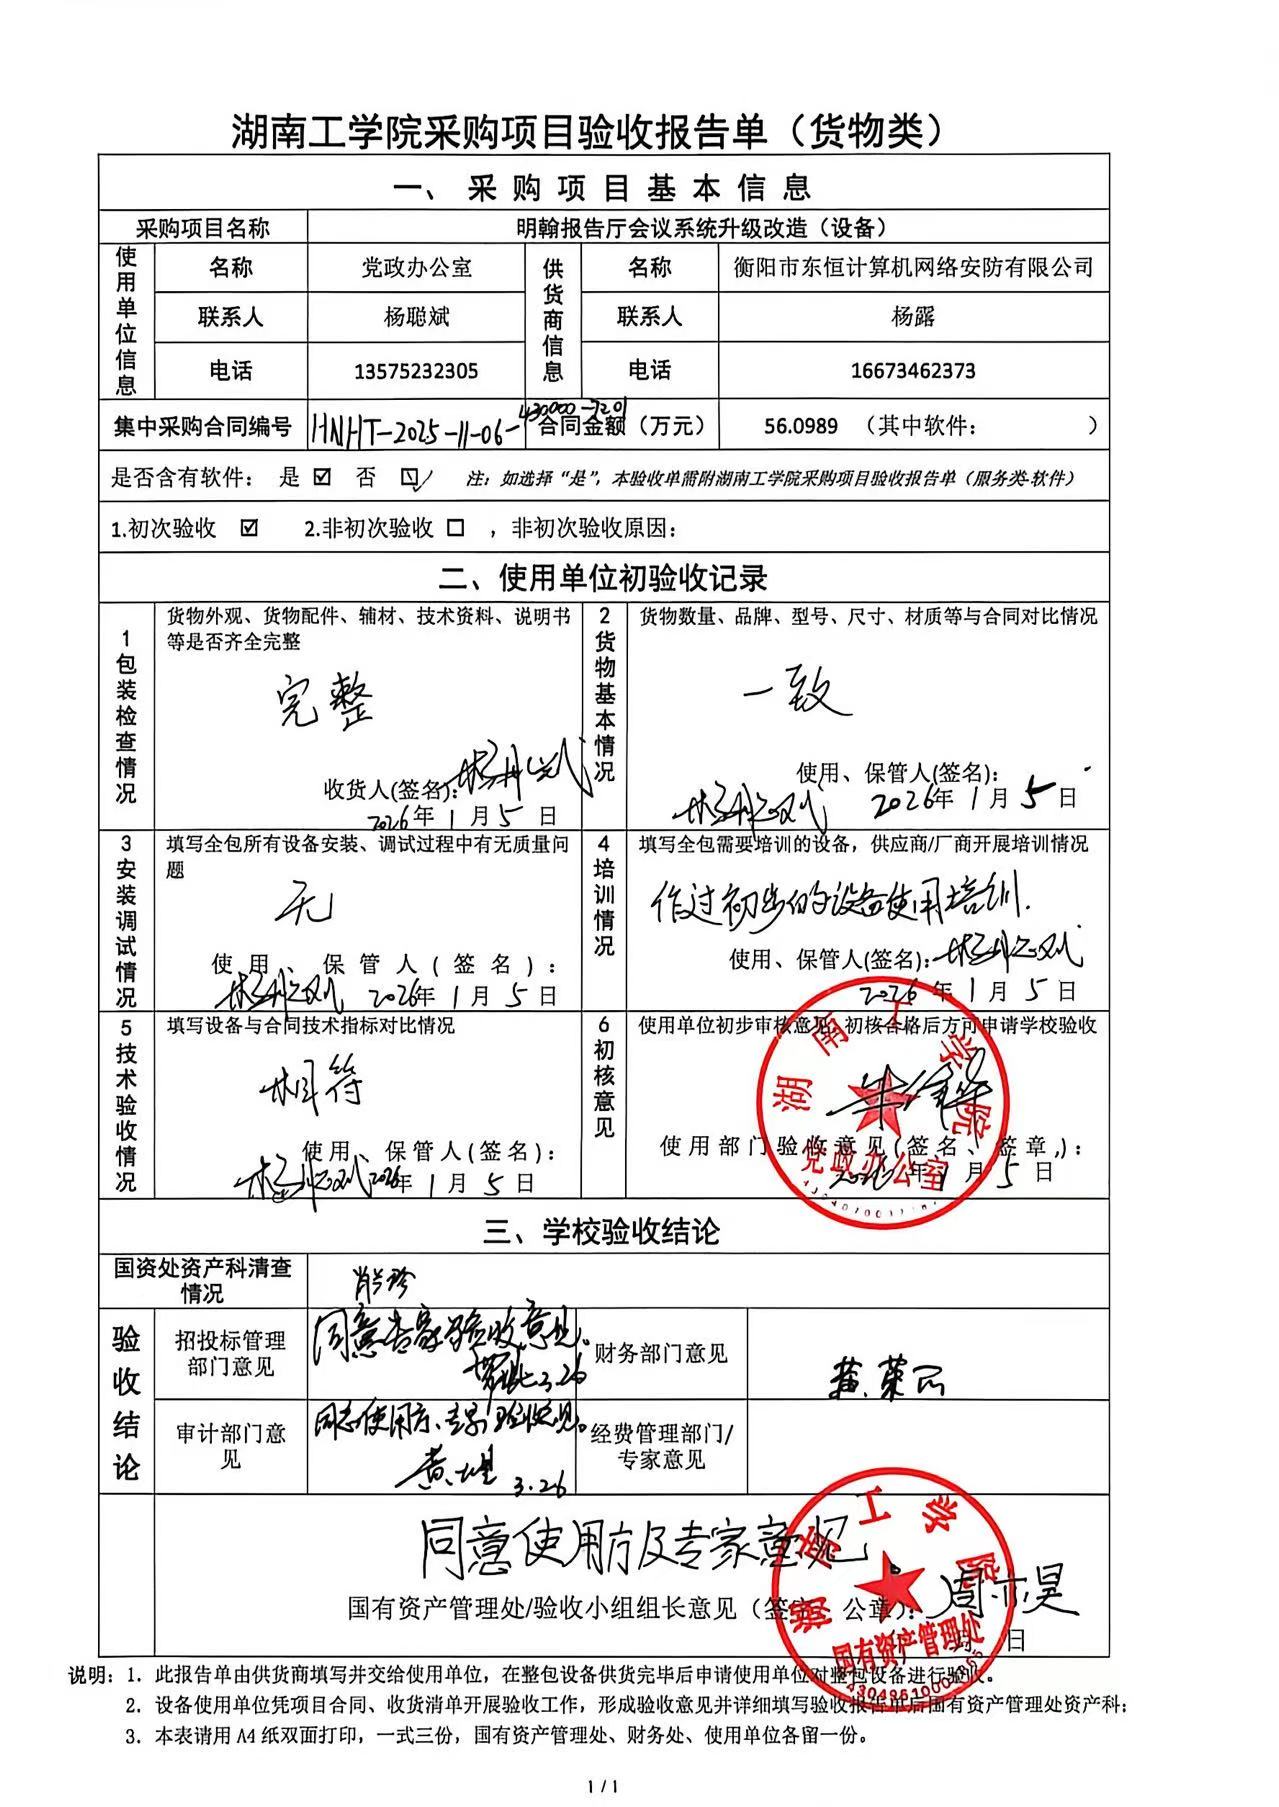 湖南工学院采购项目验收报告单（货物类）
一、采购项目基本信息
采购项目名称 明翰报告厅会议系统升级改造（设备）
使用单位信息 名称 党政办公室 供货商信息 名称 衡阳市东恒计算机网络安防有限公司
联系人 杨聪斌 联系人 杨露
电话 13575232305 电话 16673462373
集中采购合同编号 HNHT-2025-11-06-430000-7201 合同金额（万元） 56.0989 （其中软件： ）
是否含有软件： 是 ☑ 否 ☑ 注：如选择“是”，本验收单需附湖南工学院采购项目验收报告单（服务类-软件）
1.初次验收 ☑ 2.非初次验收 □ ，非初次验收原因：
二、使用单位初验收记录
1包装检查情况
货物外观、货物配件、辅材、技术资料、说明书
等是否齐全完整
完整
收货人(签名):
2026年1月5日
2货物基本情况
货物数量、品牌、型号、尺寸、材质等与合同对比情况
一致
使用、保管人(签名):
2026年1月5日
3安装调试情况
填写全包所有设备安装、调试过程中有无质量问
题
无
使用、保管人(签名):
2026年1月5日
4培训情况
填写全包需要培训的设备，供应商/厂商开展培训情况
作过初步的设备使用培训.
使用、保管人(签名):
2026年1月5日
5技术验收情况
填写设备与合同技术指标对比情况
相符
使用、保管人(签名):
2026年1月5日
6初核意见
使用单位初步审核意见,初核合格后方可申请学校验收
湖南工学院
使用部门验收意见(签名、签章,):
党政办公室
2026年1月5日
三、学校验收结论
国资处资产科清查
情况
验收结论
招投标管理
部门意见
同意专家验收意见。
3.26
财务部门意见
审计部门意
见
同意使用方、专家验收意见。
3.26
经费管理部门/
专家意见
同意使用方及专家意见
湖南工学院
国有资产管理处/验收小组组长意见（签字、公章）: 周亦昊
国有资产管理处
月 日
说明：1. 此报告单由供货商填写并交给使用单位，在整包设备供货完毕后申请使用单位对整包设备进行验收。
2. 设备使用单位凭项目合同、收货清单开展验收工作，形成验收意见并详细填写验收报告单后国有资产管理处资产科；
3. 本表请用 A4 纸双面打印，一式三份，国有资产管理处、财务处、使用单位各留一份。
1 / 1